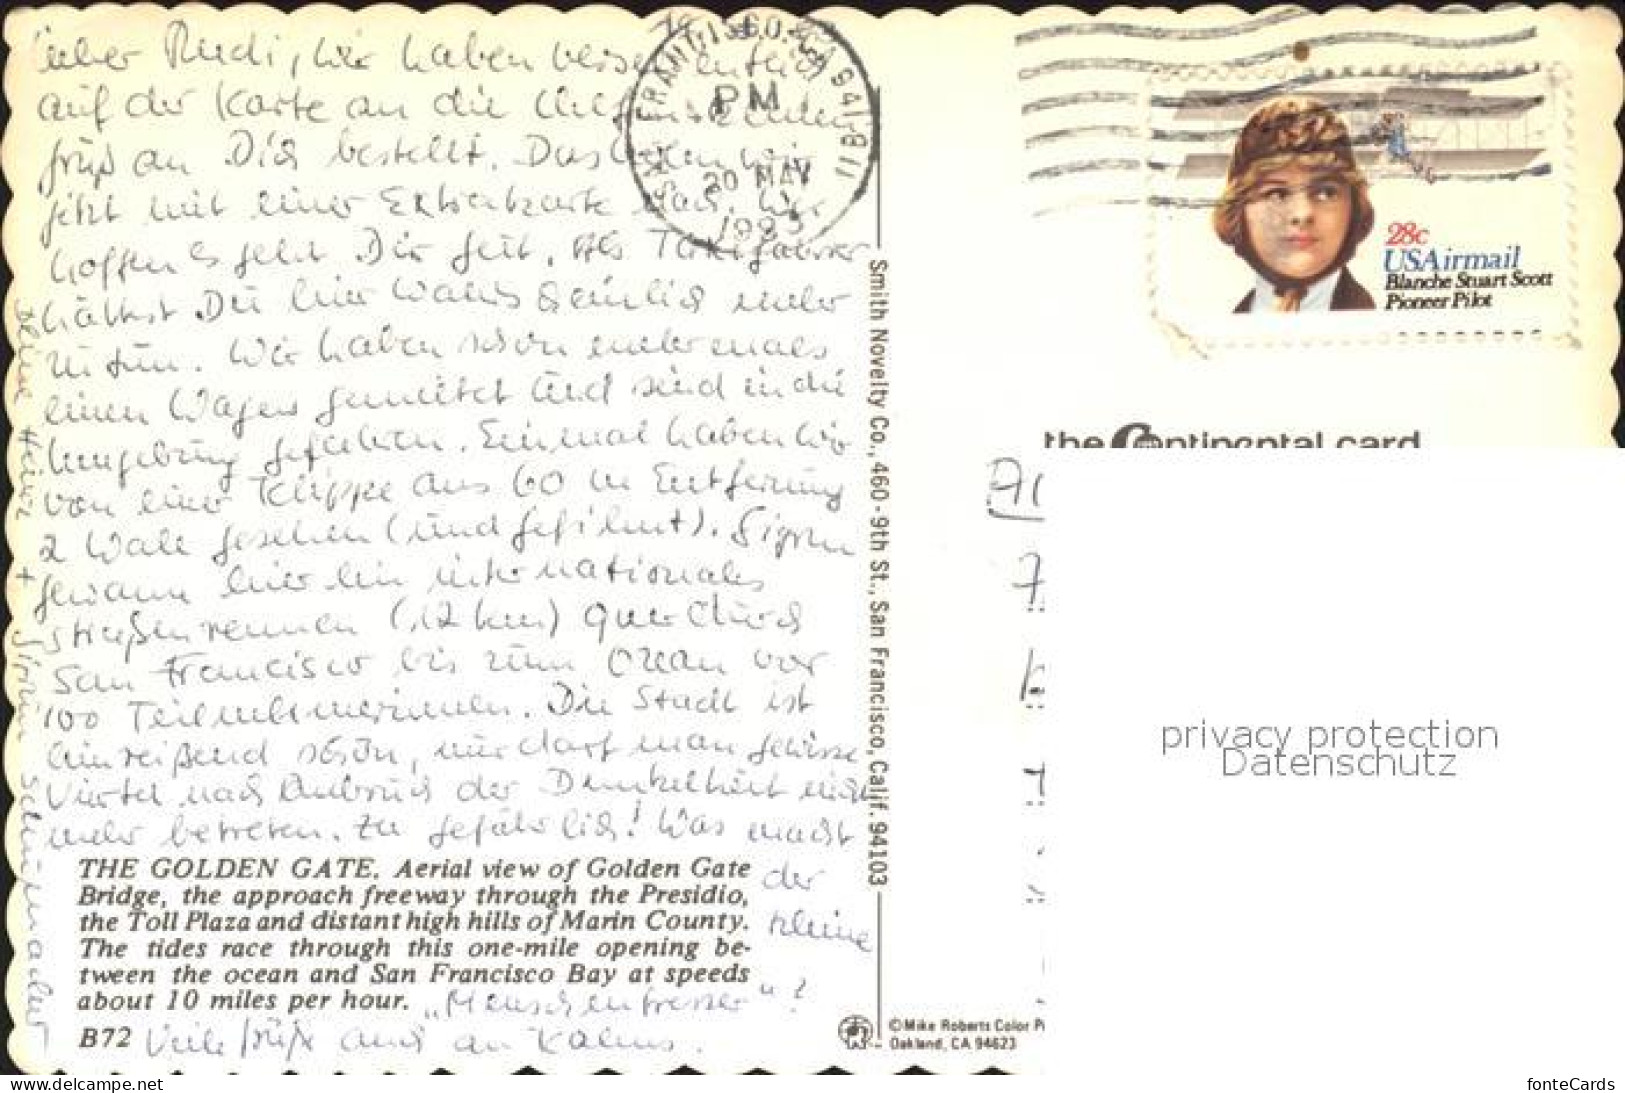 Lieber Rudi, wir haben versehentlich
auf der Karte an die
Grüß an Dich bestellt. Das holen wir
jetzt mit einer Extrakarte nach. Wir
hoffen es geht Dir gut. Als Taxifahrer
hättest Du hier wahrscheinlich mehr
zu tun. Wir haben schon mehrmals
einen Wagen gemietet und sind in die
Umgebung gefahren. Einmal haben wir
von einer Klippe aus 60 m Entfernung
2 Wale gesehen (und gefilmt). Sigrun
gewann hier ein internationales
Straßenrennen (12 km) quer durch
San Francisco bis zum Ozean vor
100 Teilnehmerinnen. Die Stadt ist
hinreißend schön, nur darf man gewisse
Viertel nach Anbruch der Dunkelheit nicht
mehr betreten. Zu gefährlich! Was macht
der
kleine
„Menschenfresser“?
Viele Grüße auch an Kalms.
Deine Heinz + Sigrun Schuhmacher
THE GOLDEN GATE. Aerial view of Golden Gate
Bridge, the approach freeway through the Presidio,
the Toll Plaza and distant high hills of Marin County.
The tides race through this one-mile opening be-
tween the ocean and San Francisco Bay at speeds
about 10 miles per hour.
B72
Smith Novelty Co., 460 - 9th St., San Francisco, Calif. 94103
SAN FRANCISCO, CA 941
PM
20 MAY
28c
USAirmail
Blanche Stuart Scott
Pioneer Pilot
the Continental card
privacy protection
Datenschutz
©Mike Roberts Color P
Oakland, CA 94623
Zum Vergrößern Bild anklicken.remote
fonteCards